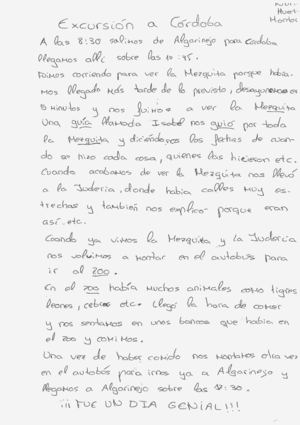 Huert
Montor
Excursión a Córdoba
A las 8:30 salimos de Algarinejo para Córdoba
llegamos allí sobre las 10:45.
Fuimos corriendo para ver la Mezquita porque había-
mos llegado más tarde de lo previsto, desayunamos en
5 minutos y nos fuimos a ver la Mezquita
Una guía llamada Isabel nos guió por toda
la Mezquita y diciendonos las fechas de cuan-
do se hizo cada cosa, quienes las hicieron etc.
Cuando acabamos de ver la Mezquita nos llevó
a la Juderia, donde había calles muy es-
trechas y también nos explicó porque eran
así, etc.
Cuando ya vimos la Mezquita y la Juderia
nos volvimos a montar en el autobús para
ir al zoo.
En el zoo había muchos animales como tigres
leones, cebras etc. Llegó la hora de comer
y nos sentamos en unos bancos que había en
el zoo y comimos.
Una vez de haber comido nos montamos otra vez
en el autobús para irnos ya a Algarinejo y
llegamos a Algarinejo sobre las :30.
¡¡¡ FUE UN DIA GENIAL!!!